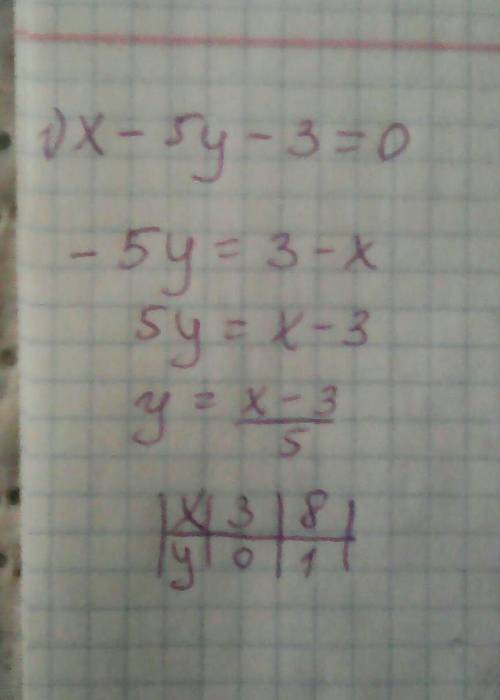 1) x - 5y - 3 = 0
- 5y = 3 - x
5y = x - 3
y = \frac{x - 3}{5}
| x | 3 | 8 |
| y | 0 | 1 |